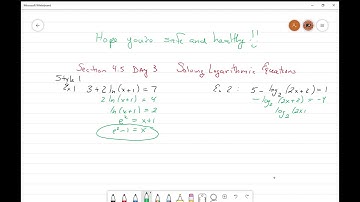 Microsoft Whiteboard
Hope you're safe and healthy!!
Section 4.5 Day 3 Solving Logarithmic Equations
Style 1
Ex 1 3+2 ln(x+1) = 7
2 ln(x+1) = 4
ln(x+1) = 2
e² = x+1
e²-1 = x
Ex. 2: 5 - log₂(2x+2) = 1
- log₂(2x+2) = -4
log₂(2x+